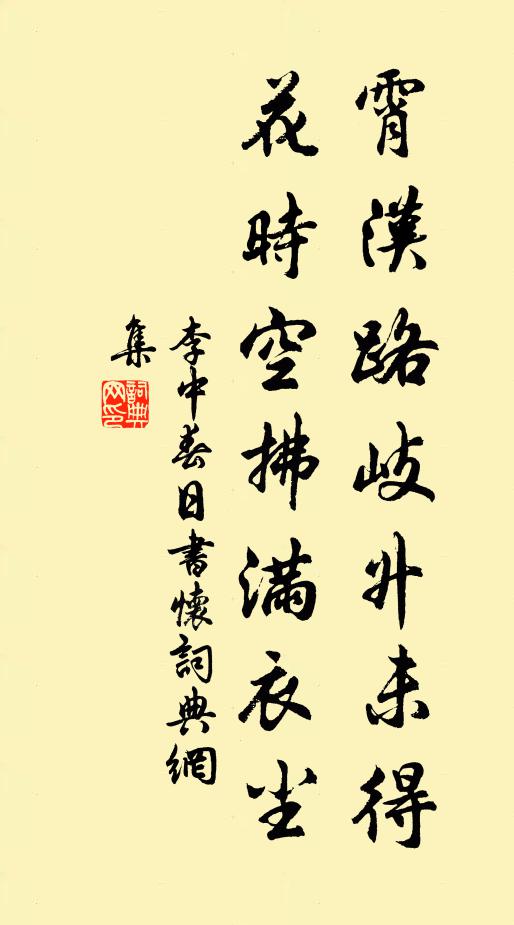 霄漢路岐升未得
花時空拂滿衣尘
李中春日書懷詞典網
集
詞典
网印